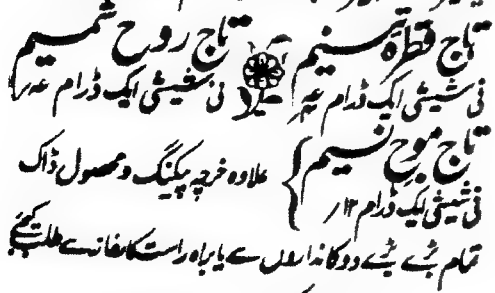 تاج قطرہ تسنیم
تاج روح شمیم
فی شیشی ایک ڈرام
فی شیشی ایک ڈرام
تاج موج نسیم
علاوہ خرچہ پیکنگ و محصول ڈاک
فی شیشی ایک ڈرام ۱۲؍
تمام بڑے بڑے دوکانداروں سے یا براہ راست کارخانہ سے طلب کیجئے